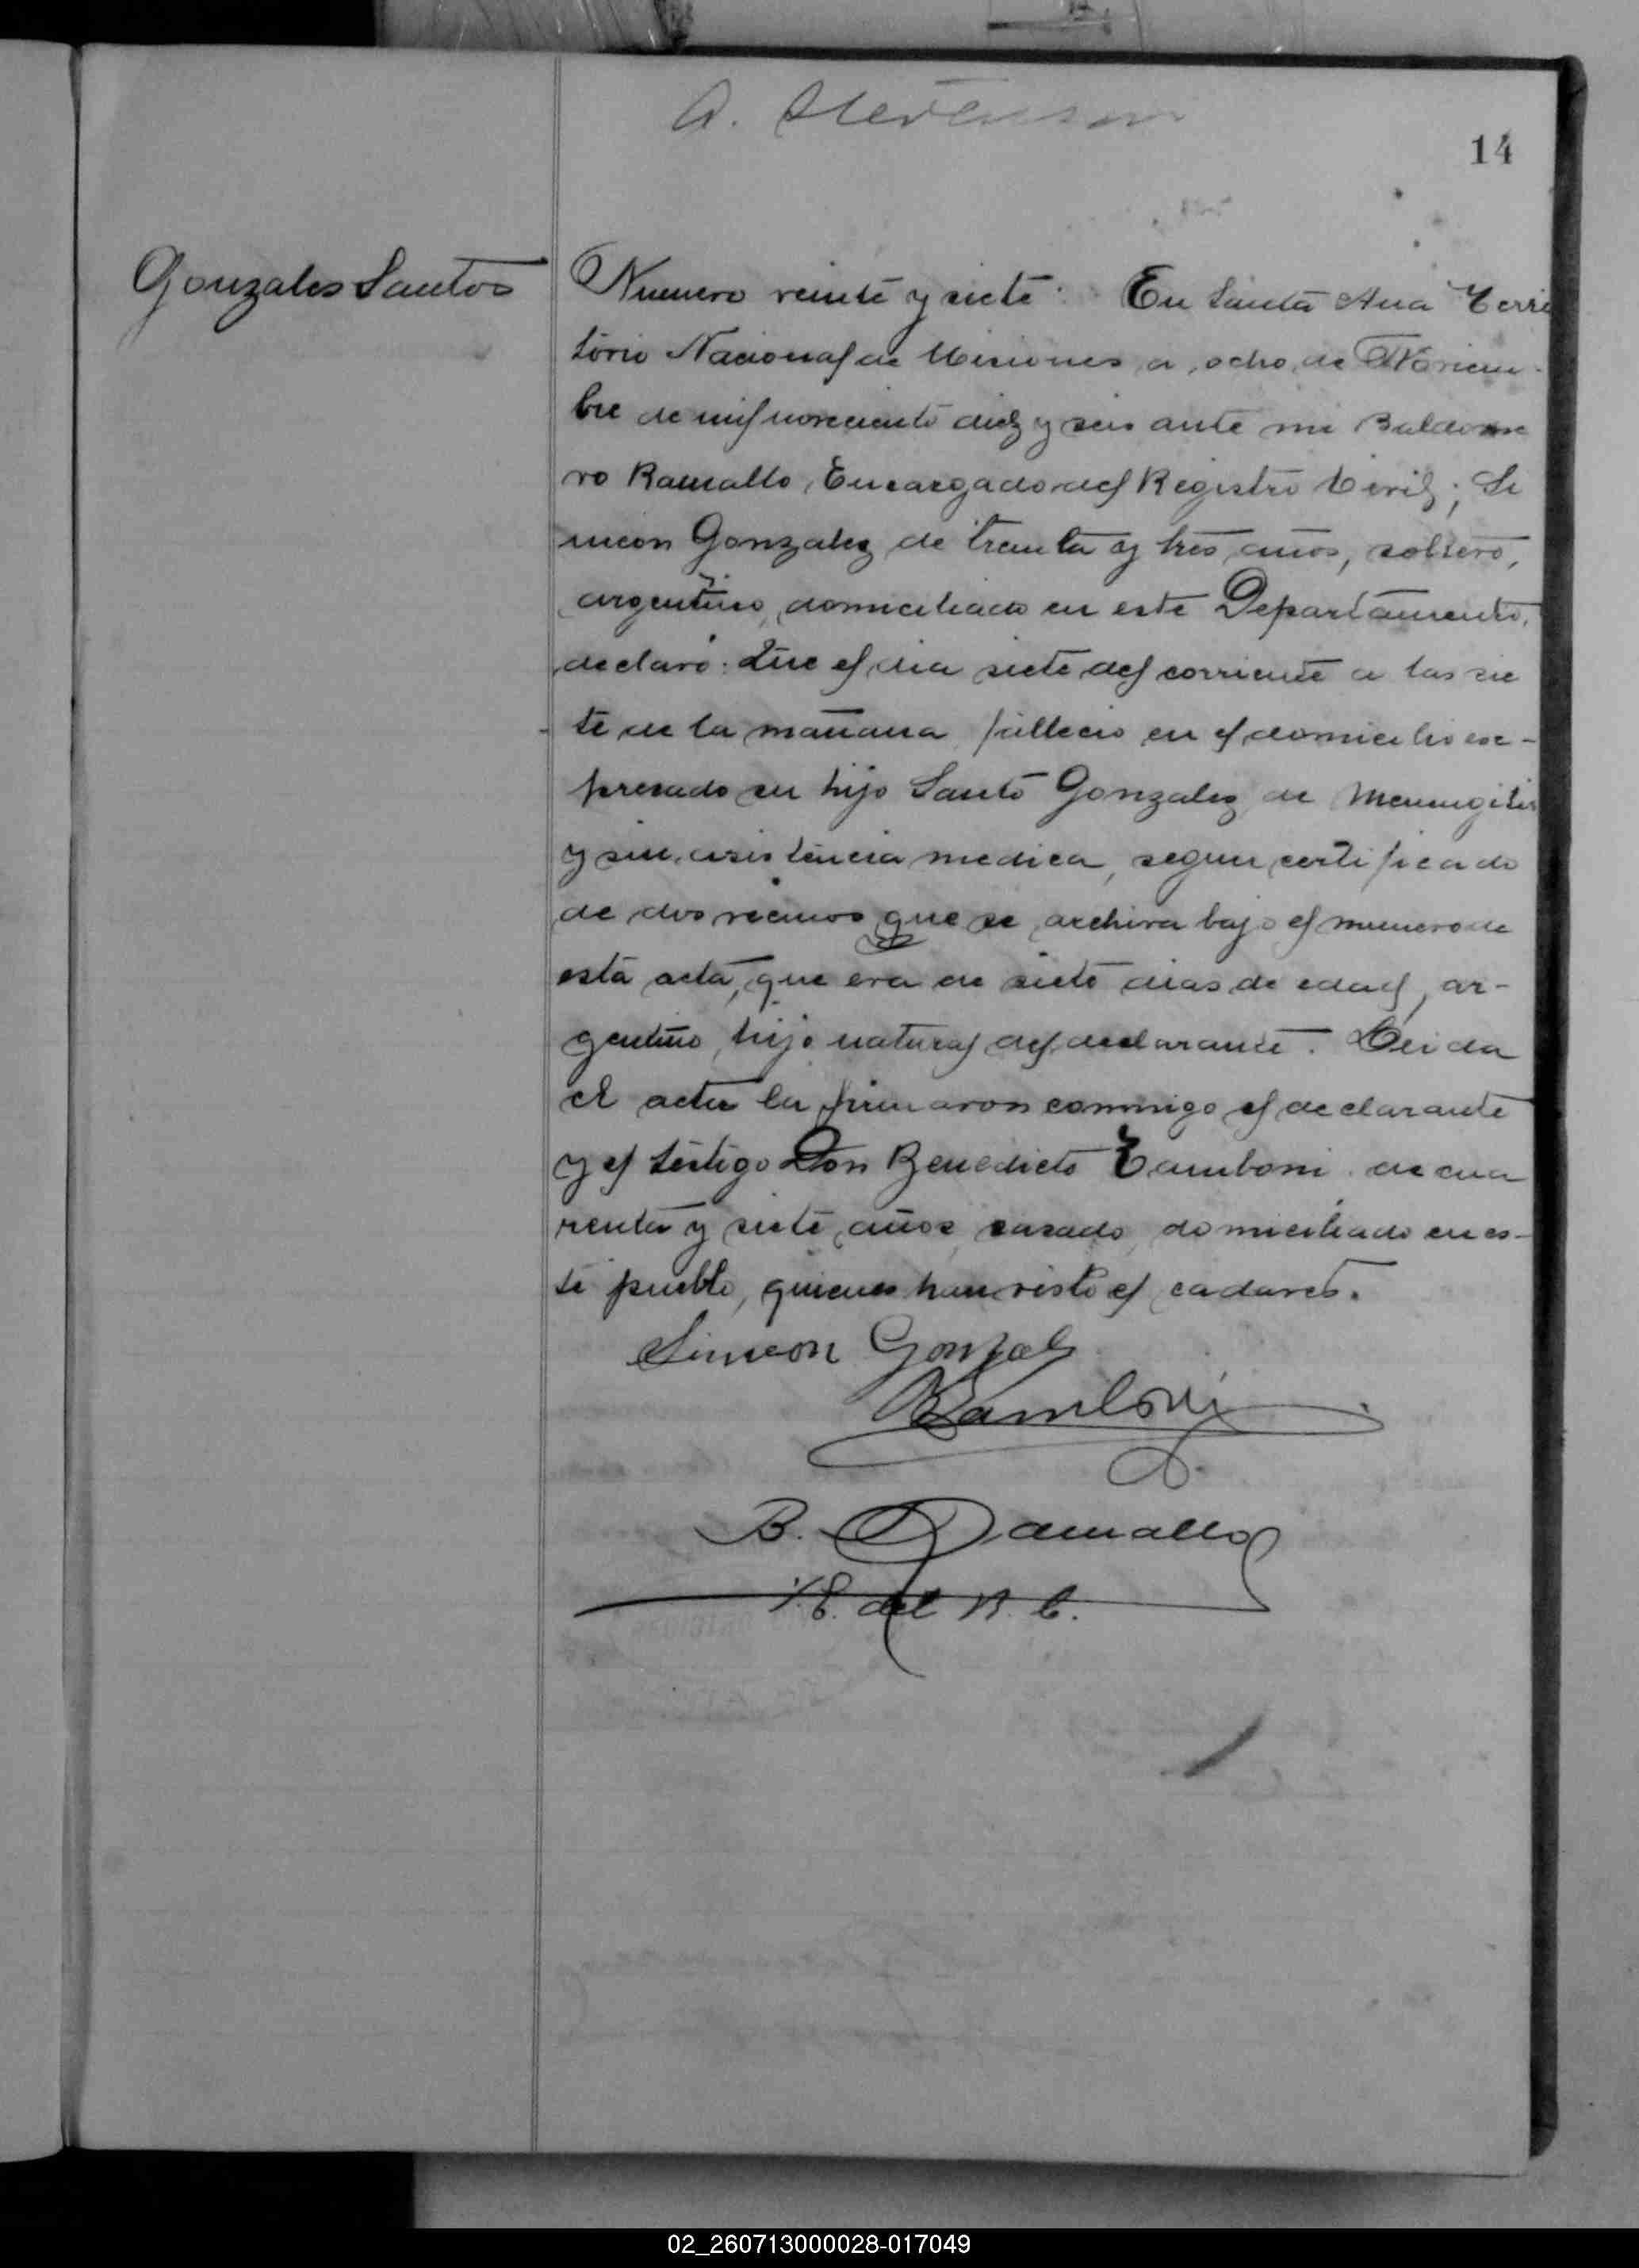 A. Stevenson
14
Gonzales Santos
Numero veinte y siete. En Santa Ana Terri
torio Nacional de Misiones a ocho de Noviem-
bre de mil novecientos diez y seis ante mi Baldome
ro Ramallo, Encargado del Registro Civil; Si
meon Gonzalez de treinta y tres años, soltero,
argentino, domiciliado en este Departamento,
declaró: Que el dia siete del corriente a las sie
te de la mañana fallecio en el domicilio ex-
presado su hijo Santo Gonzalez de Meningitis
y sin asistencia medica, segun certificado
de dos vecinos que se archiva bajo el numero de
esta acta, que era de siete dias de edad, ar-
gentino, hijo natural del declarante. Leida
el acta la firmaron conmigo el declarante
y el testigo Don Benedicto Tamboni de cua
renta y siete años casado domiciliado en es-
te pueblo, quienes han visto el cadaver.
Simeon Gonzalz
B. Ramallo
E. del R. C.
02_260713000028-017049